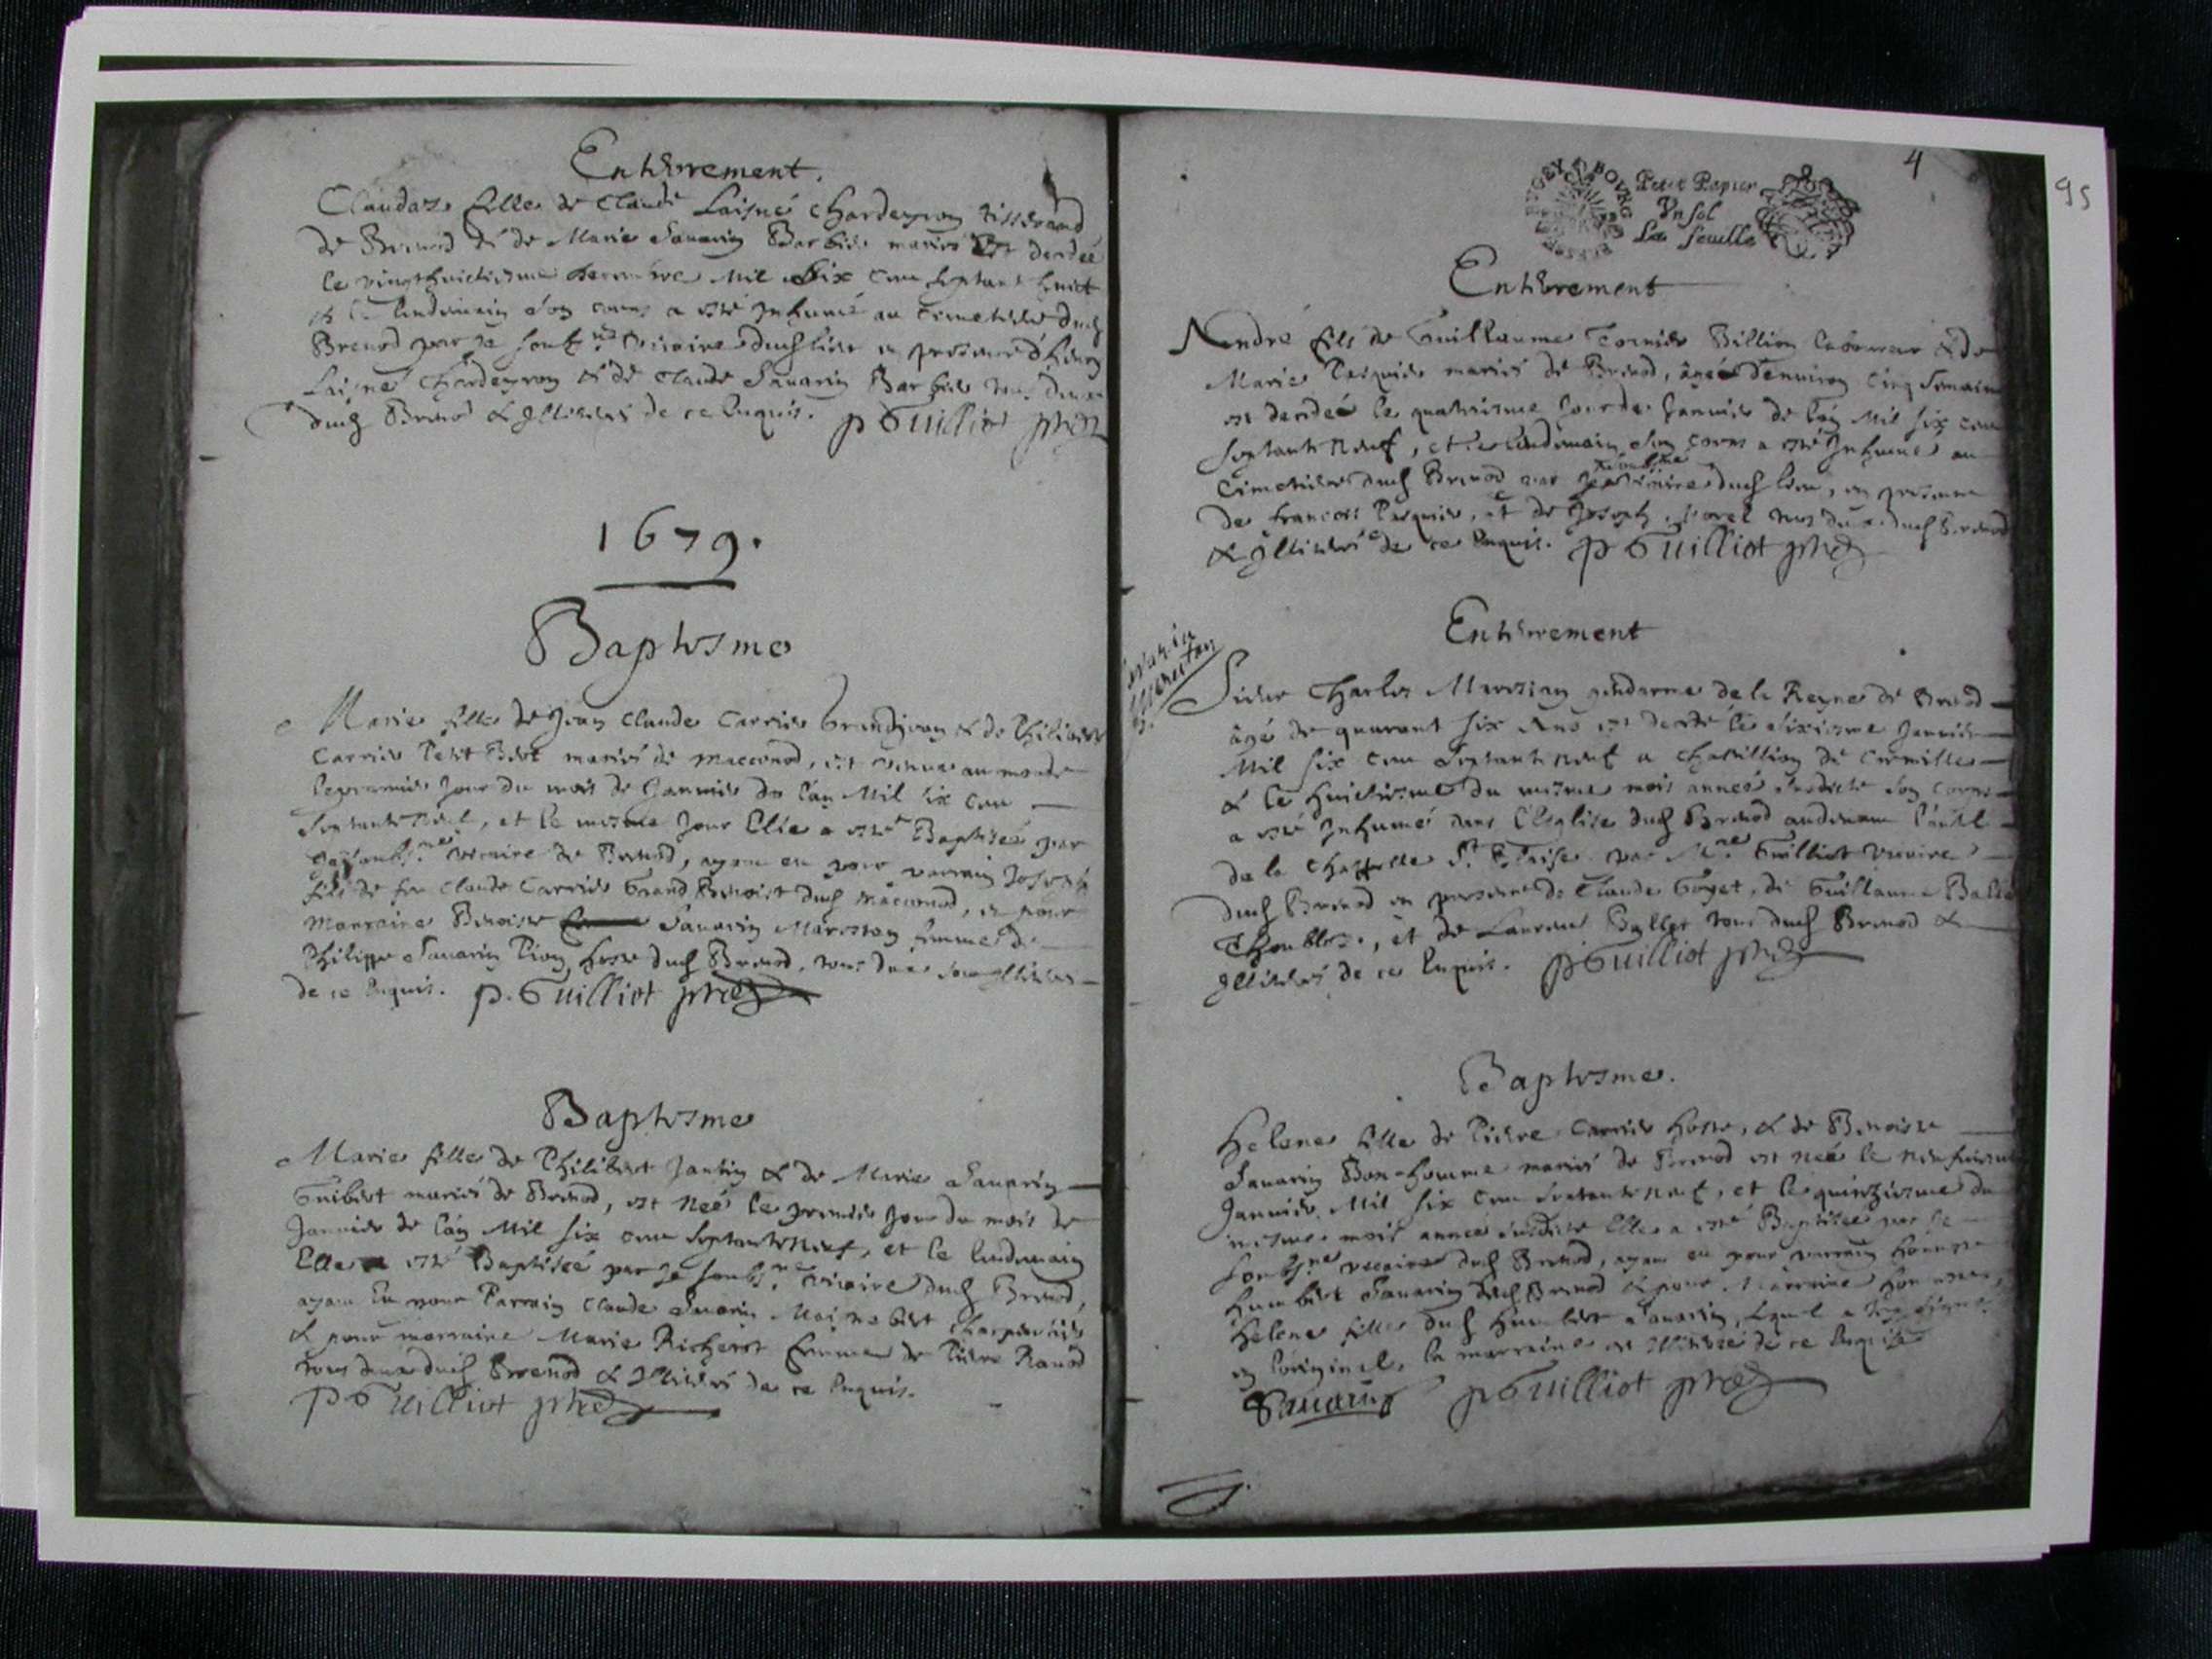 Enterrement.
Claudaz fille de Claude Laisné Chardeyron tisserand
de Brenod et de Marie Sauarin Barbier mariés est decdeé
le vingthuictiesme decembre Mil Six cen septante huict
et le lendemain son corps a esté Inhumé au Cimetiere dud
Brenod par je soubs.né vicaire dud lieu en presence
Laisné Chardeyron et de Claude Sauarin Barbier tous deux
dud Brenod & Illiteres de ce Enquis. P Guilliot pbre
1679.
Baptesme
Marie fille de Jean Claude Carrier Grandjean & de
Carrier Petit mariés de Macconod, est venue au monde
le premier jour du mois de Januier de l'an Mil six cen
septante neuf, et le mesme jour Elle a esté Baptiseé par
je soubs.né vicaire de Brenod, ayan eu pour parrain Joseph
fils de feu Claude Carrier Grand Benoist dud Macconod, et pour
Marraine Benoiste Sauarin Marestan femme de
Philippe Sauarin Pion hoste dud Brenod, tous deux Illiteres
de ce Enquis. P. Guilliot pbre
Baptesme
Marie fille de Philibert Jantin & de Marie Sauarin
Guibert mariés de Brenod, est neé le premier jour du mois de
Januier de l'an Mil six cen septante neuf, et le lendemain
Elle a esté Baptiseé par je soubs.né vicaire dud Brenod,
ayan Eu pour Parrain Claude Sauarin charpentier
& pour marraine Marie Richerot femme de Pierre Rauod
tous deux dud Brenod & Illiteres de ce Enquis.
P Guilliot pbre
4
95
BOURG
Petit Papier
Vn sol
La feuille
Enterrement
André fils de Guillaume Tornier Billion laboureur & de
Marie Pasquier mariés de Brenod, âgé d'enuiron cinq semaines
est decdeé le quatriesme jour de Januier de l'an Mil six cen
septante neuf, et le lendemain son corps a esté Inhumé au
soubs.né
Cimetiere dud Brenod par je vicaire dud lieu, en presence
de francois Pasquier, et de Joseph tous deux dud Brenod
& Illiteres de ce Enquis. P Guilliot pbre
Enterrement
Sauarin
Marestan
Sieur Charles Marestan gendarme de la Reyne de Brenod
âgé de quarant six Ans est decdé le sixiesme Januier
Mil six cen septante neuf a Chatillion de Cormilles
& le huictiesme du mesme mois année susdicte son corps
a esté Inhumé dans l'Eglise dud Brenod audeuan l'autel
de la Chappelle St Blaise par Mre Guilliot vicaire
dud Brenod en presence de Claude Goyet, de Guillaume
et de Laurent Ballet tous dud Brenod &
Illiteres de ce Enquis. P Guilliot pbre
Baptesme.
Helene fille de Pierre Carrier hoste, & de Benoiste
Sauarin Bon-homme mariés de Brenod est neé le neufuiesme
Januier Mil six cen septante neuf, et le quinziesme du
mesme mois année susdicte Elle a esté Baptiseé par je
soubs.né vicaire dud Brenod, ayan eu pour parrain honneste
Humbert Sauarin dud Brenod & pour Marraine honneste
Helene fille dud Humbert Sauarin, lequel a signé
en l'original, la marraine est Illiteré de ce Enquise
Sauarin P Guilliot pbre